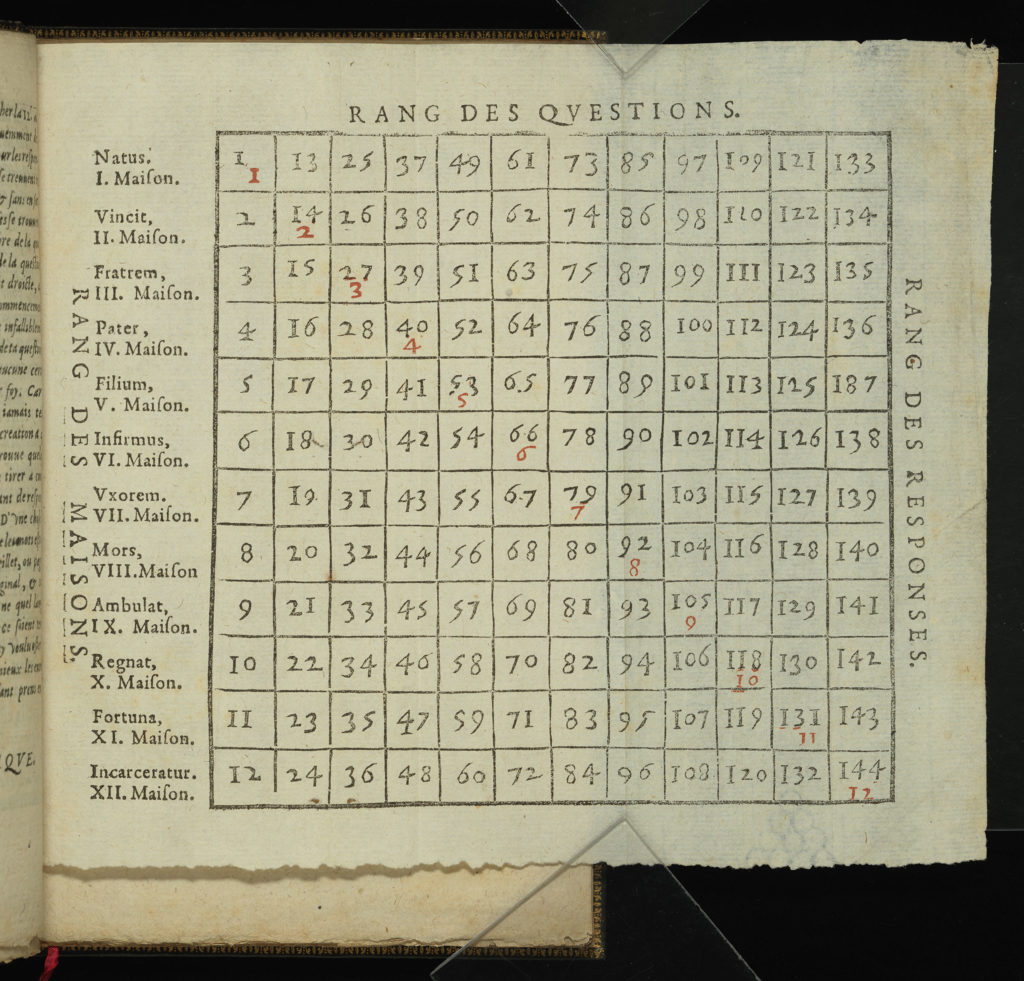 RANG DES QVESTIONS.
Natus.
I. Maiſon.
1 13 25 37 49 61 73 85 97 109 121 133
1
Vincit,
II. Maiſon.
2 14 26 38 50 62 74 86 98 110 122 134
2
Fratrem,
III. Maiſon.
3 15 27 39 51 63 75 87 99 111 123 135
3
Pater,
IV. Maiſon.
4 16 28 40 52 64 76 88 100 112 124 136
4
Filium,
V. Maiſon.
5 17 29 41 53 65 77 89 101 113 125 187
5
Infirmus,
VI. Maiſon.
6 18 30 42 54 66 78 90 102 114 126 138
6
Vxorem.
VII. Maiſon.
7 19 31 43 55 67 79 91 103 115 127 139
7
Mors,
VIII. Maiſon
8 20 32 44 56 68 80 92 104 116 128 140
8
Ambulat,
IX. Maiſon.
9 21 33 45 57 69 81 93 105 117 129 141
9
Regnat,
X. Maiſon.
10 22 34 46 58 70 82 94 106 118 130 142
10
Fortuna,
XI. Maiſon.
11 23 35 47 59 71 83 95 107 119 131 143
11
Incarceratur.
XII. Maiſon.
12 24 36 48 60 72 84 96 108 120 132 144
12
RANG DES MAISONS.
RANG DES RESPONSES.
QVE.